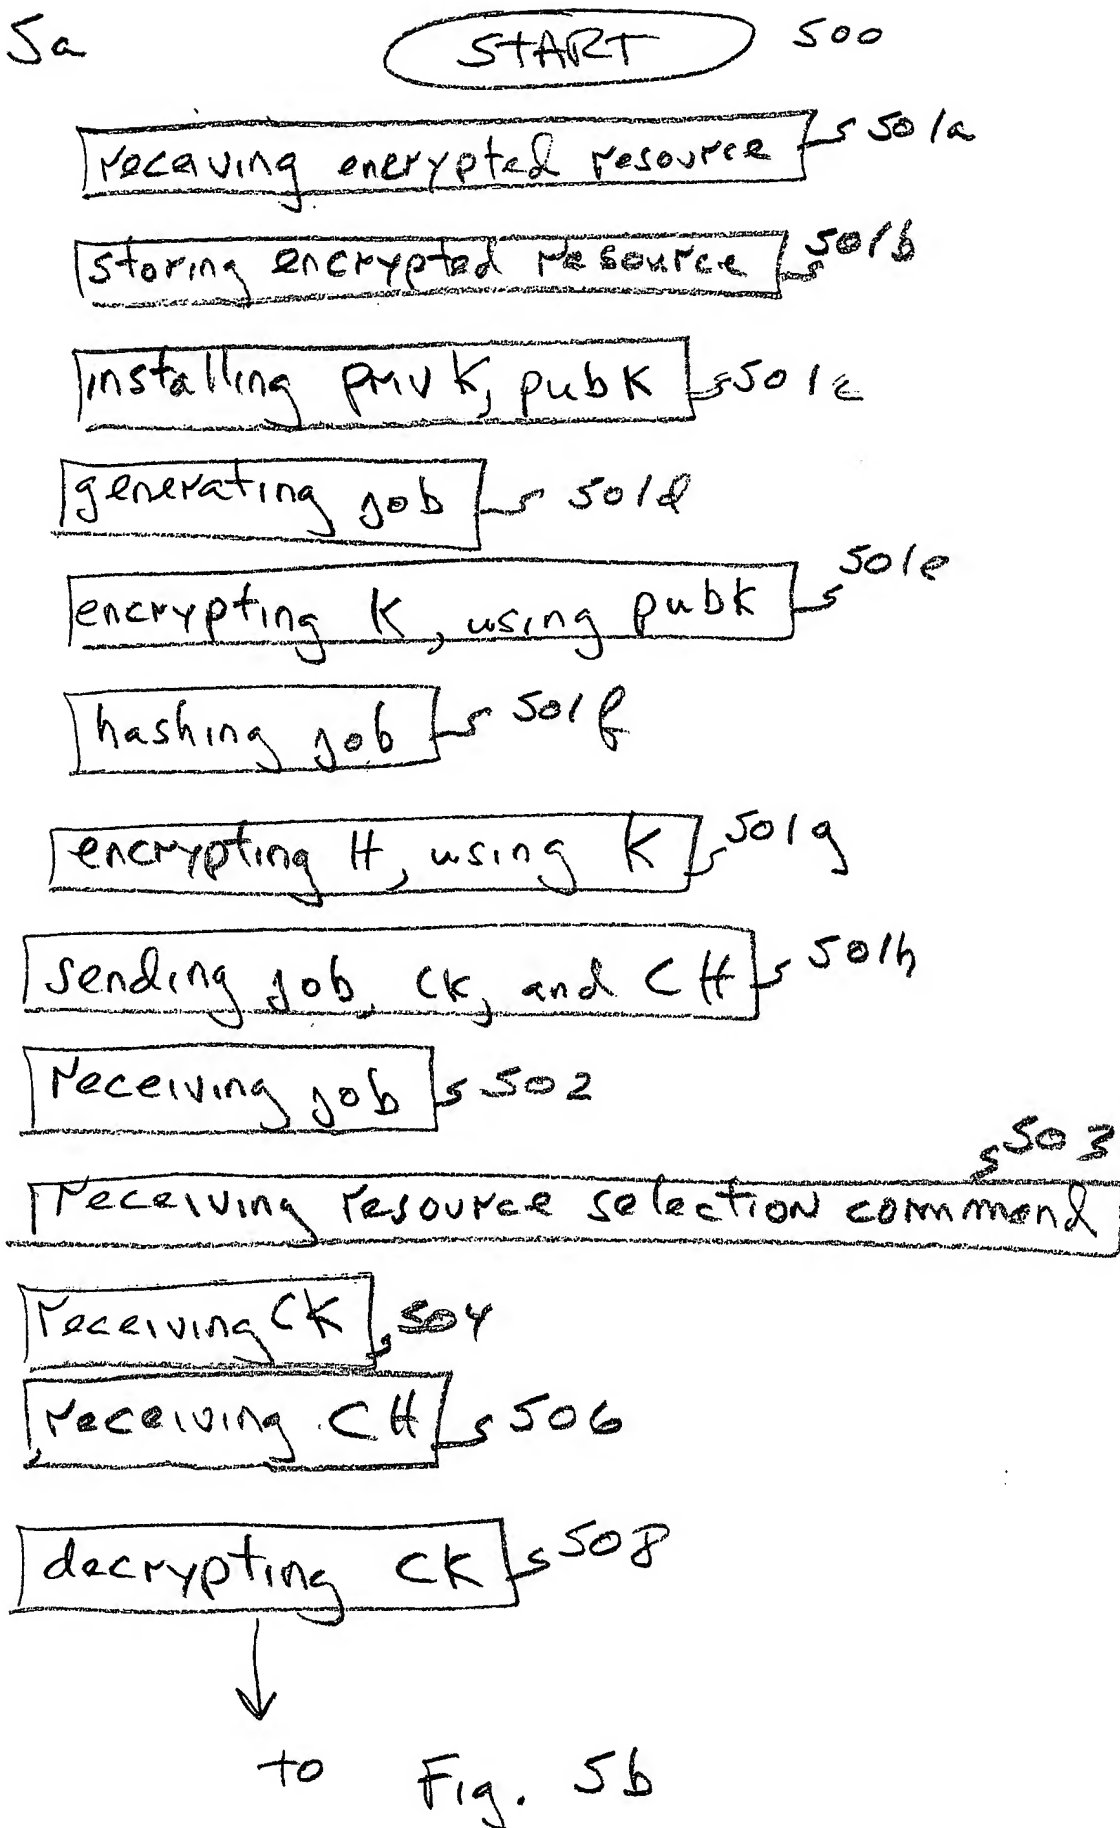 5a START 500
receiving encrypted resource 501a
storing encrypted resource 501b
installing privK, pubK 501c
generating job 501d
encrypting K, using pubK 501e
hashing job 501f
encrypting H, using K 501g
sending job, CK, and CH 501h
receiving job 502
503
receiving resource selection command
receiving CK 504
receiving CH 506
decrypting CK 508
to Fig. 5b